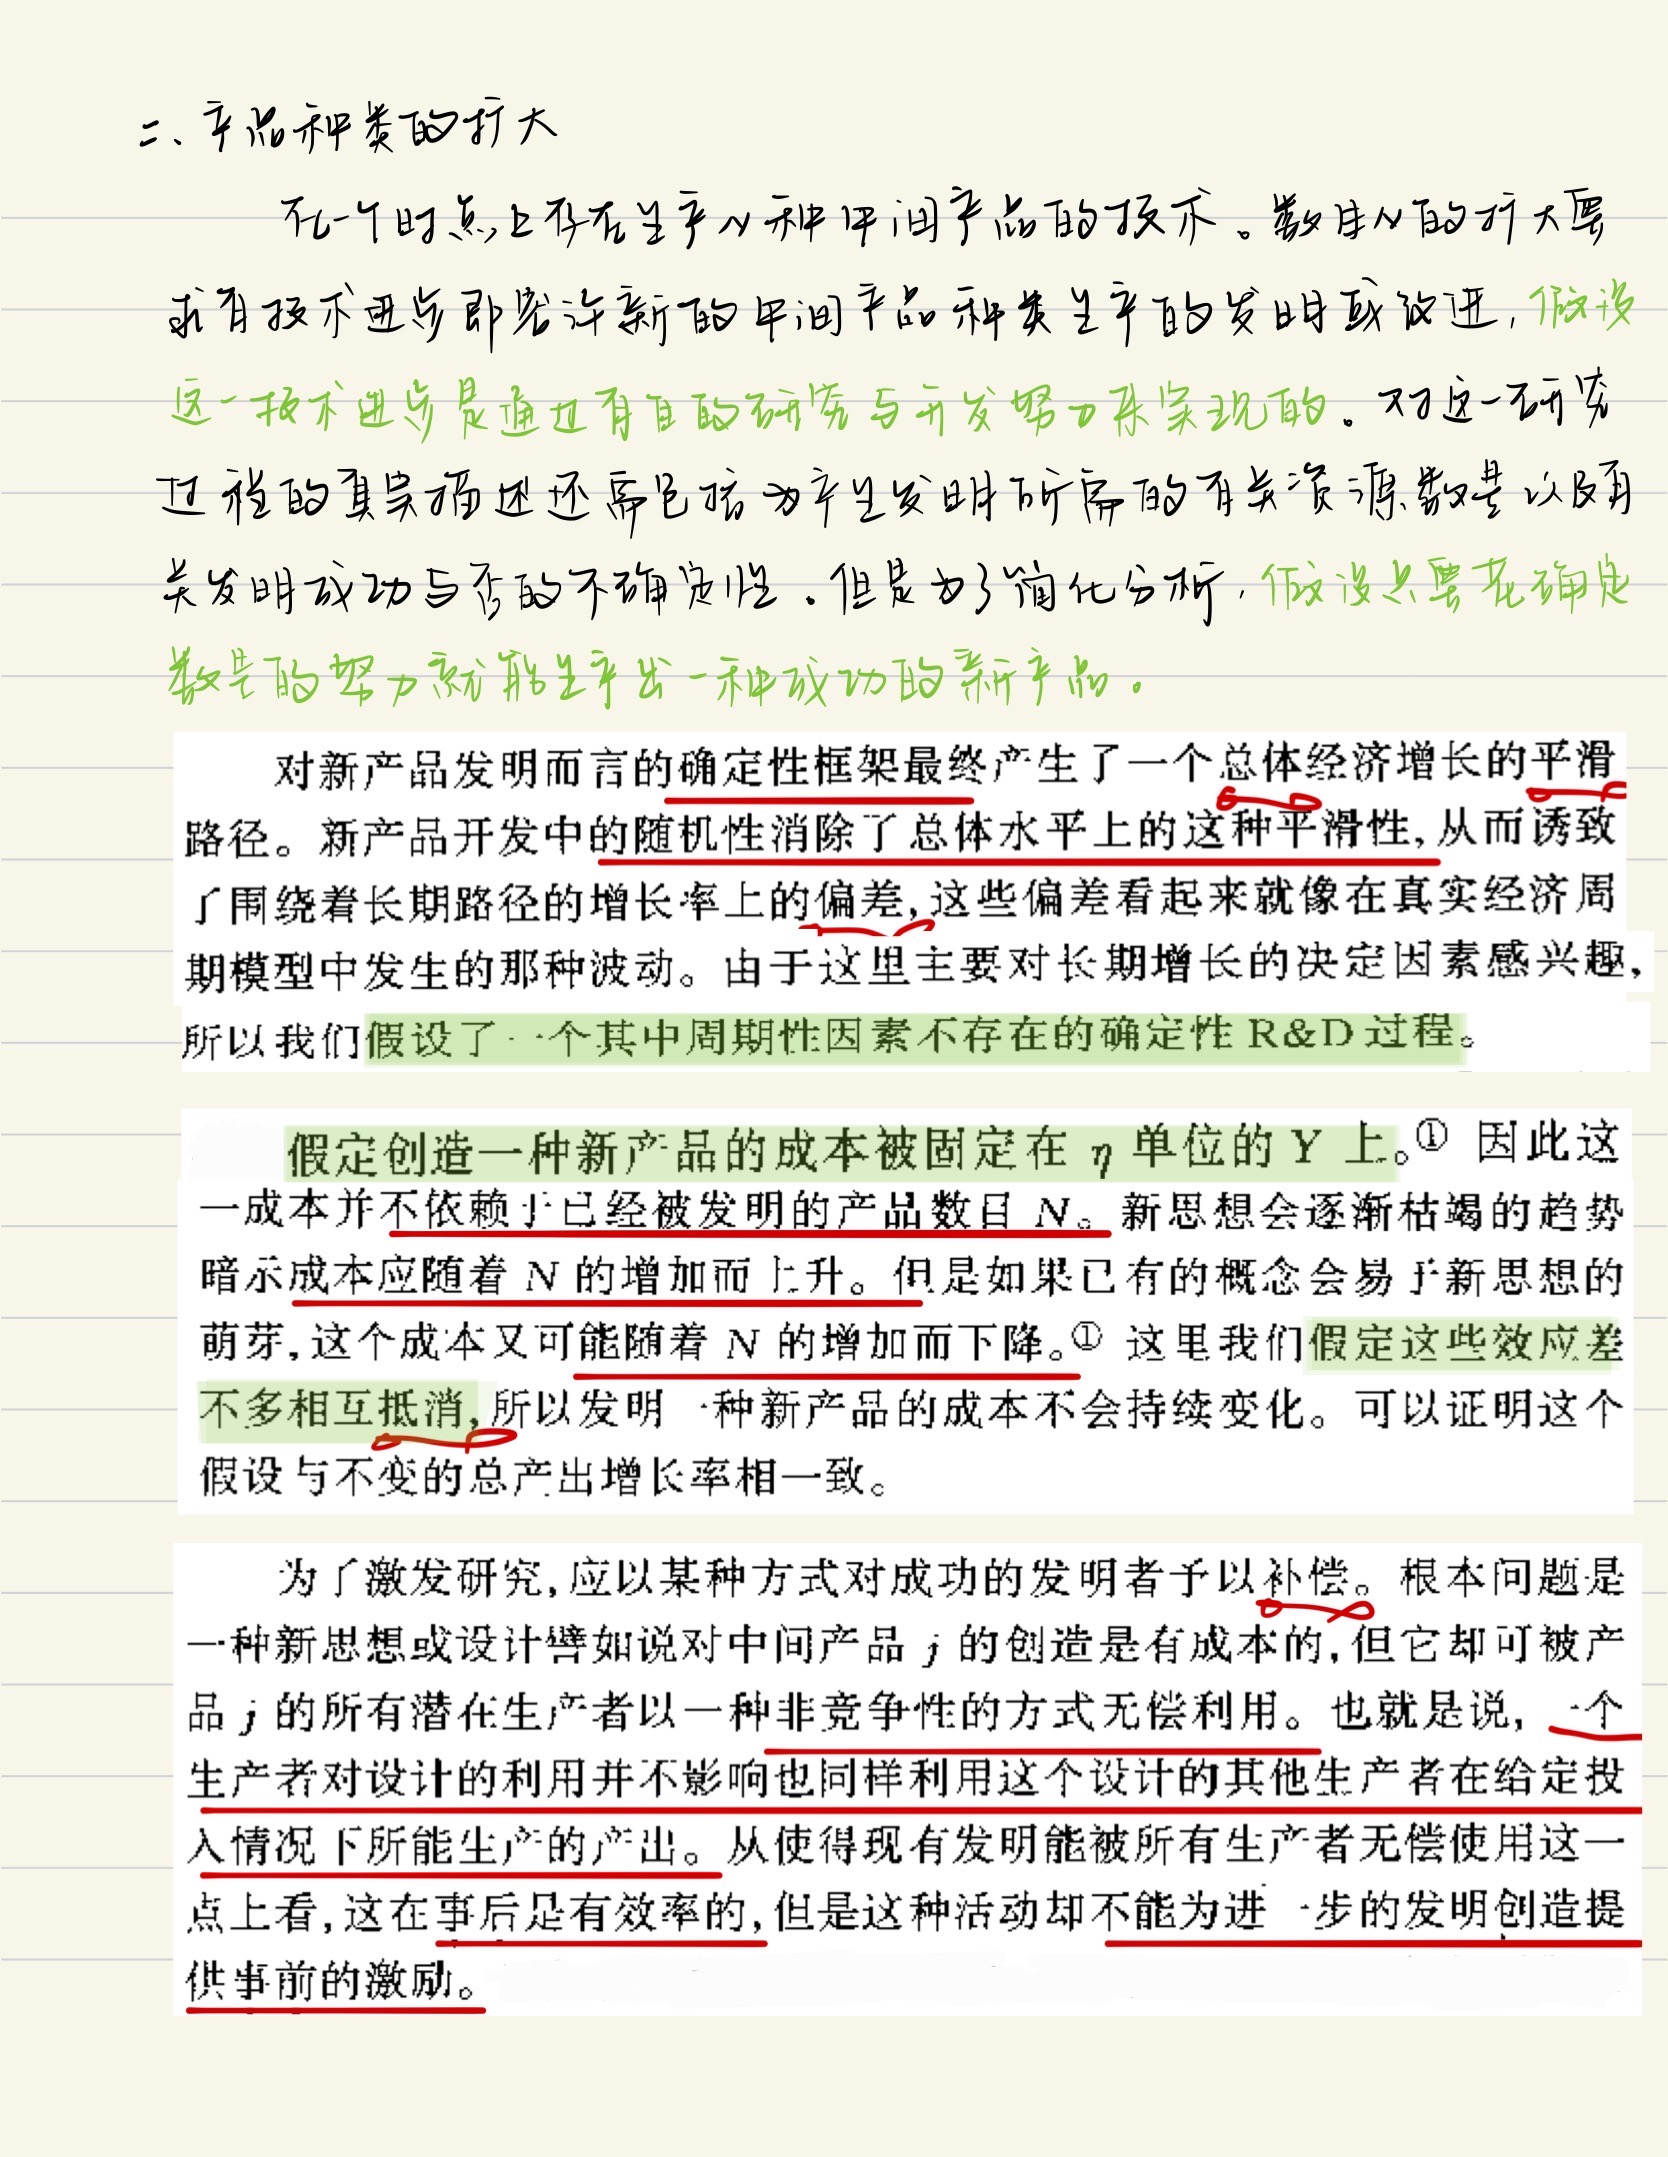 二、产品种类的扩大
在一个时点上存在生产N种中间产品的技术。数目N的扩大要
求有技术进步即容许新的中间产品种类生产的发明或改进,假设
这一技术进步是通过有目的研究与开发努力来实现的。对这一研究
过程的真实描述还需包括为产生发明所需的有关资源数量以及有
关发明成功与否的不确定性。但是为了简化分析,假设只要花确定
数量的努力就能生产出一种成功的新产品。
对新产品发明而言的确定性框架最终产生了一个总体经济增长的平滑
路径。新产品开发中的随机性消除了总体水平上的这种平滑性,从而诱致
了围绕着长期路径的增长率上的偏差,这些偏差看起来就像在真实经济周
期模型中发生的那种波动。由于这里主要对长期增长的决定因素感兴趣,
所以我们假设了一个其中周期性因素不存在的确定性 R&D 过程。
假定创造一种新产品的成本被固定在 η 单位的 Y 上。① 因此这
一成本并不依赖于已经被发明的产品数目 N。新思想会逐渐枯竭的趋势
暗示成本应随着 N 的增加而上升。但是如果已有的概念会易于新思想的
萌芽,这个成本又可能随着 N 的增加而下降。① 这里我们假定这些效应差
不多相互抵消,所以发明一种新产品的成本不会持续变化。可以证明这个
假设与不变的总产出增长率相一致。
为了激发研究,应以某种方式对成功的发明者予以补偿。根本问题是
一种新思想或设计譬如说对中间产品 j 的创造是有成本的,但它却可被产
品 j 的所有潜在生产者以一种非竞争性的方式无偿利用。也就是说,一个
生产者对设计的利用并不影响也同样利用这个设计的其他生产者在给定投
入情况下所能生产的产出。从使得现有发明能被所有生产者无偿使用这一
点上看,这在事后是有效率的,但是这种活动却不能为进一步的发明创造提
供事前的激励。